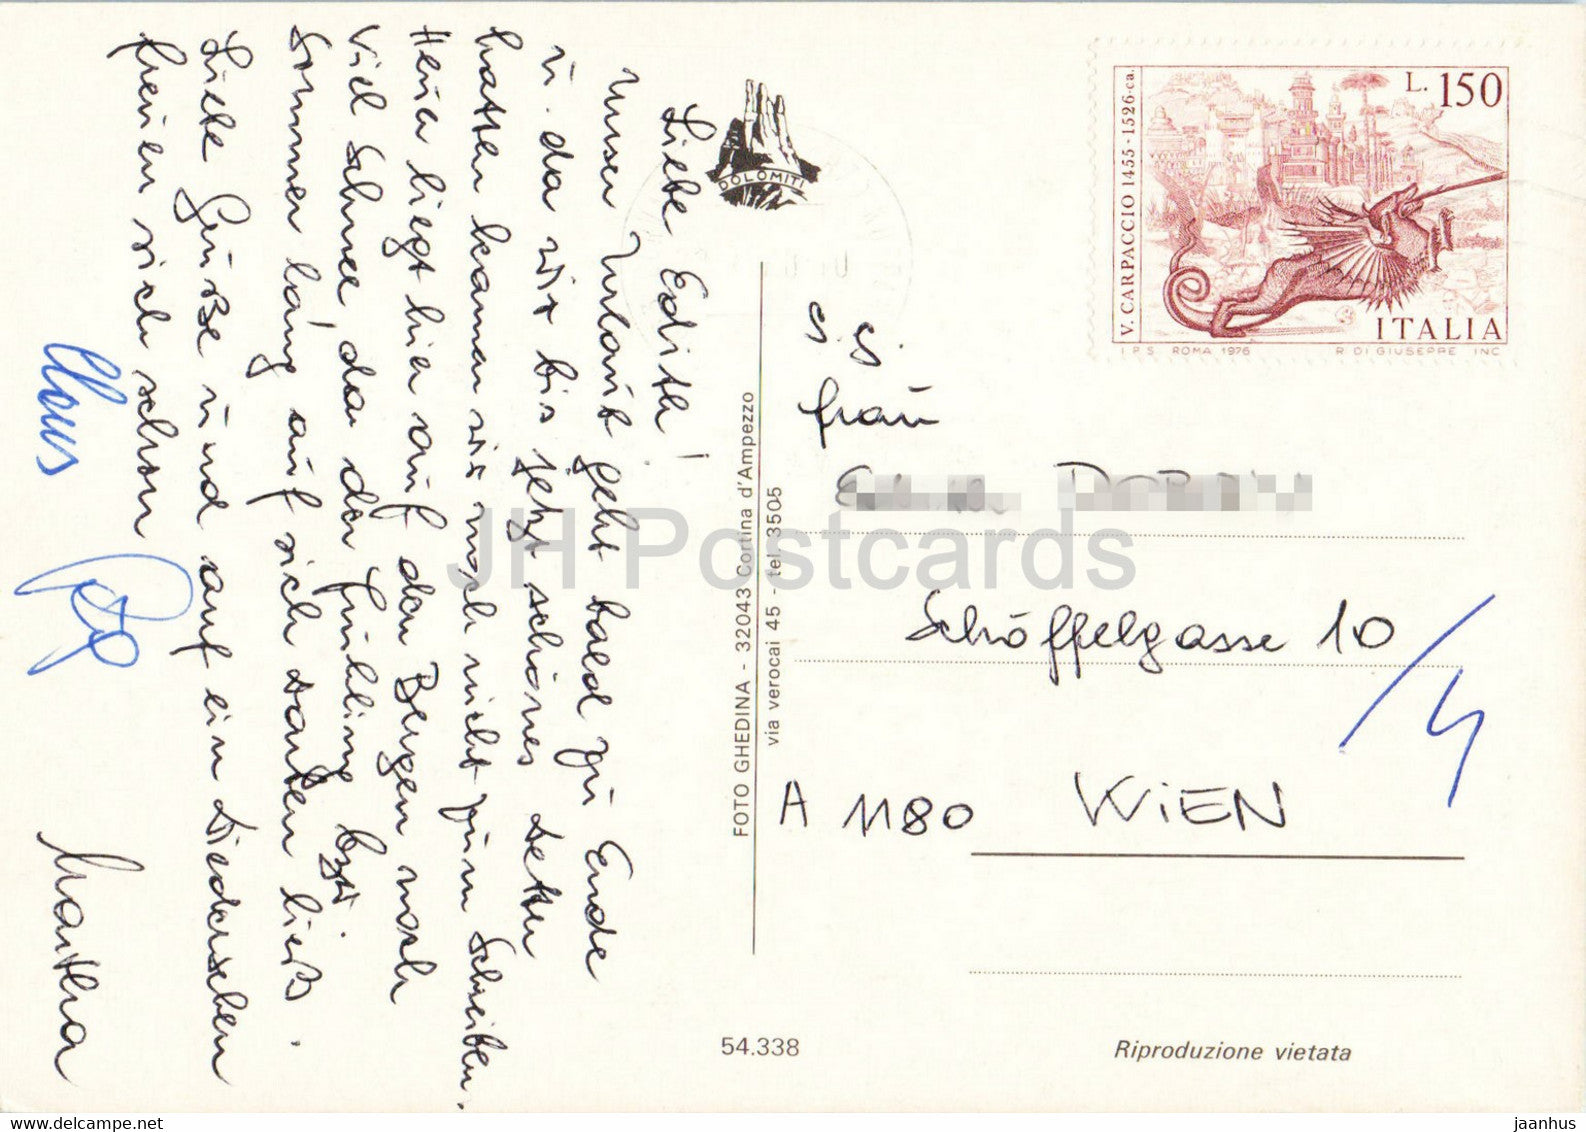 Liebe Edith!
Unser Urlaub geht bald zu Ende
u. da wir bis jetzt schönes Wetter
hatten kamen wir noch nicht zum Schreiben.
Heuer liegt hier auf den Bergen noch
viel Schnee, da der Frühling bzw.
Sommer lang auf sich warten ließ.
Liebe Grüße und auf ein Wiedersehen
freuen sich schon
Klaus
Martha
DOLOMITI
FOTO GHEDINA - 32043 Cortina d'Ampezzo
via verocai 45 - tel. 3505
54.338
V. CARPACCIO 1455-1526 ca.
L. 150
ITALIA
I.P.S. ROMA 1976
R. DI GIUSEPPE INC.
Frau
Schöffelgasse 10
/4
A 1180 WIEN
Riproduzione vietata
JH Postcards
www.delcampe.net
jaanhus